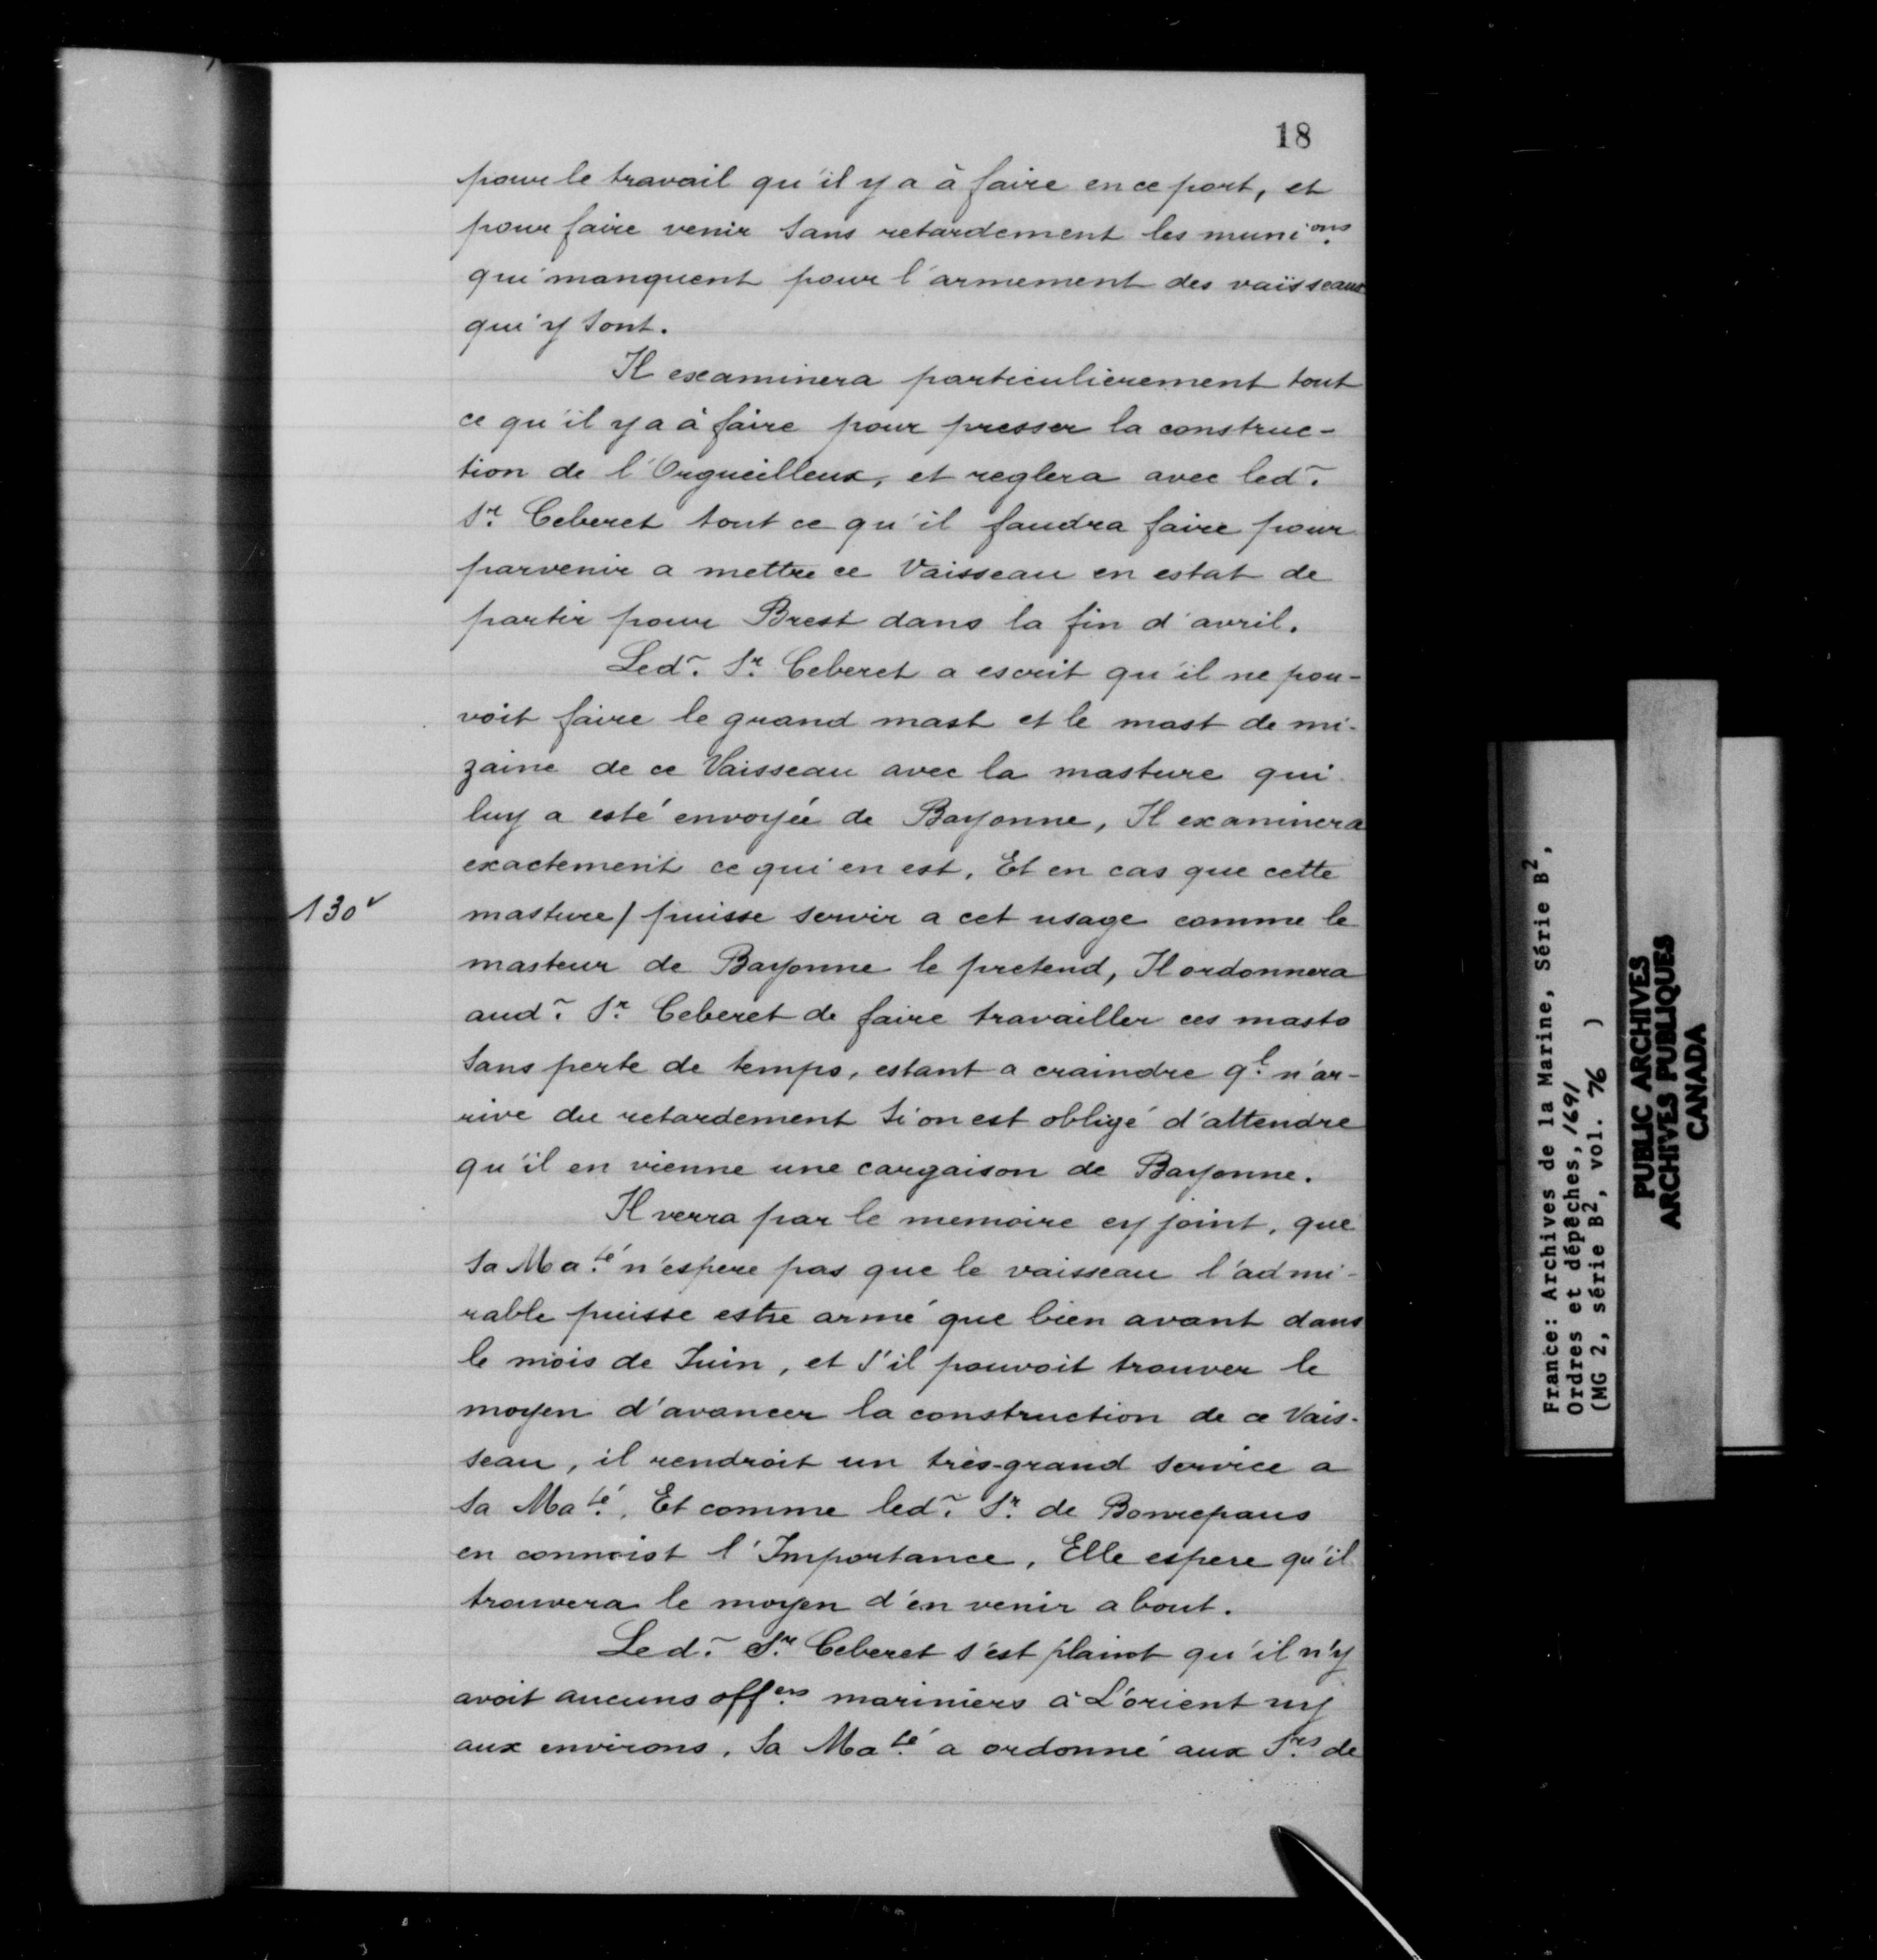 18
pour le travail qu'il y a à faire en ce port, et
pour faire venir sans retardement les muni.ons
qui manquent pour l'armement des vaisseaux
qui y sont.
Il examinera particulierement tout
ce qu'il y a à faire pour presser la construc-
tion de l'Orgueilleux, et reglera avec led.
Sr. Ceberet tout ce qu'il faudra faire pour
parvenir a mettre ce Vaisseau en estat de
partir pour Brest dans la fin d'avril.
Led. Sr. Ceberet a escrit qu'il ne pou-
voit faire le grand mast et le mast de mi-
zaine de ce Vaisseau avec la masture qui
luy a esté envoyée de Bayonne, Il examinera
exactement ce qui en est, Et en cas que cette
130v
masture / puisse servir a cet usage comme le
masteur de Bayonne le pretend, Il ordonnera
aud. Sr. Ceberet de faire travailler ces masts
sans perte de temps, estant a craindre q.l n'ar-
rive du retardement si on est obligé d'attendre
qu'il en vienne une cargaison de Bayonne.
Il verra par le memoire cy joint, que
sa Ma.té n'espere pas que le vaisseau l'admi-
rable puisse estre armé que bien avant dans
le mois de Juin, et s'il pouvoit trouver le
moyen d'avancer la construction de ce Vais-
seau, il rendroit un tres-grand service a
sa Ma.té. Et comme led. Sr. de Bonrepaus
en connoist l'Importance, Elle espere qu'il
trouvera le moyen d'en venir a bout.
Led. Sr. Ceberet s'est plaint qu'il n'y
avoit aucuns off.ers mariniers à L'orient ny
aux environs, sa Ma.té a ordonné aux Srs. de
France: Archives de la Marine, Série B2,
Ordres et dépêches, 1691
(MG 2, série B2, vol. 76 )
PUBLIC ARCHIVES
ARCHIVES PUBLIQUES
CANADA